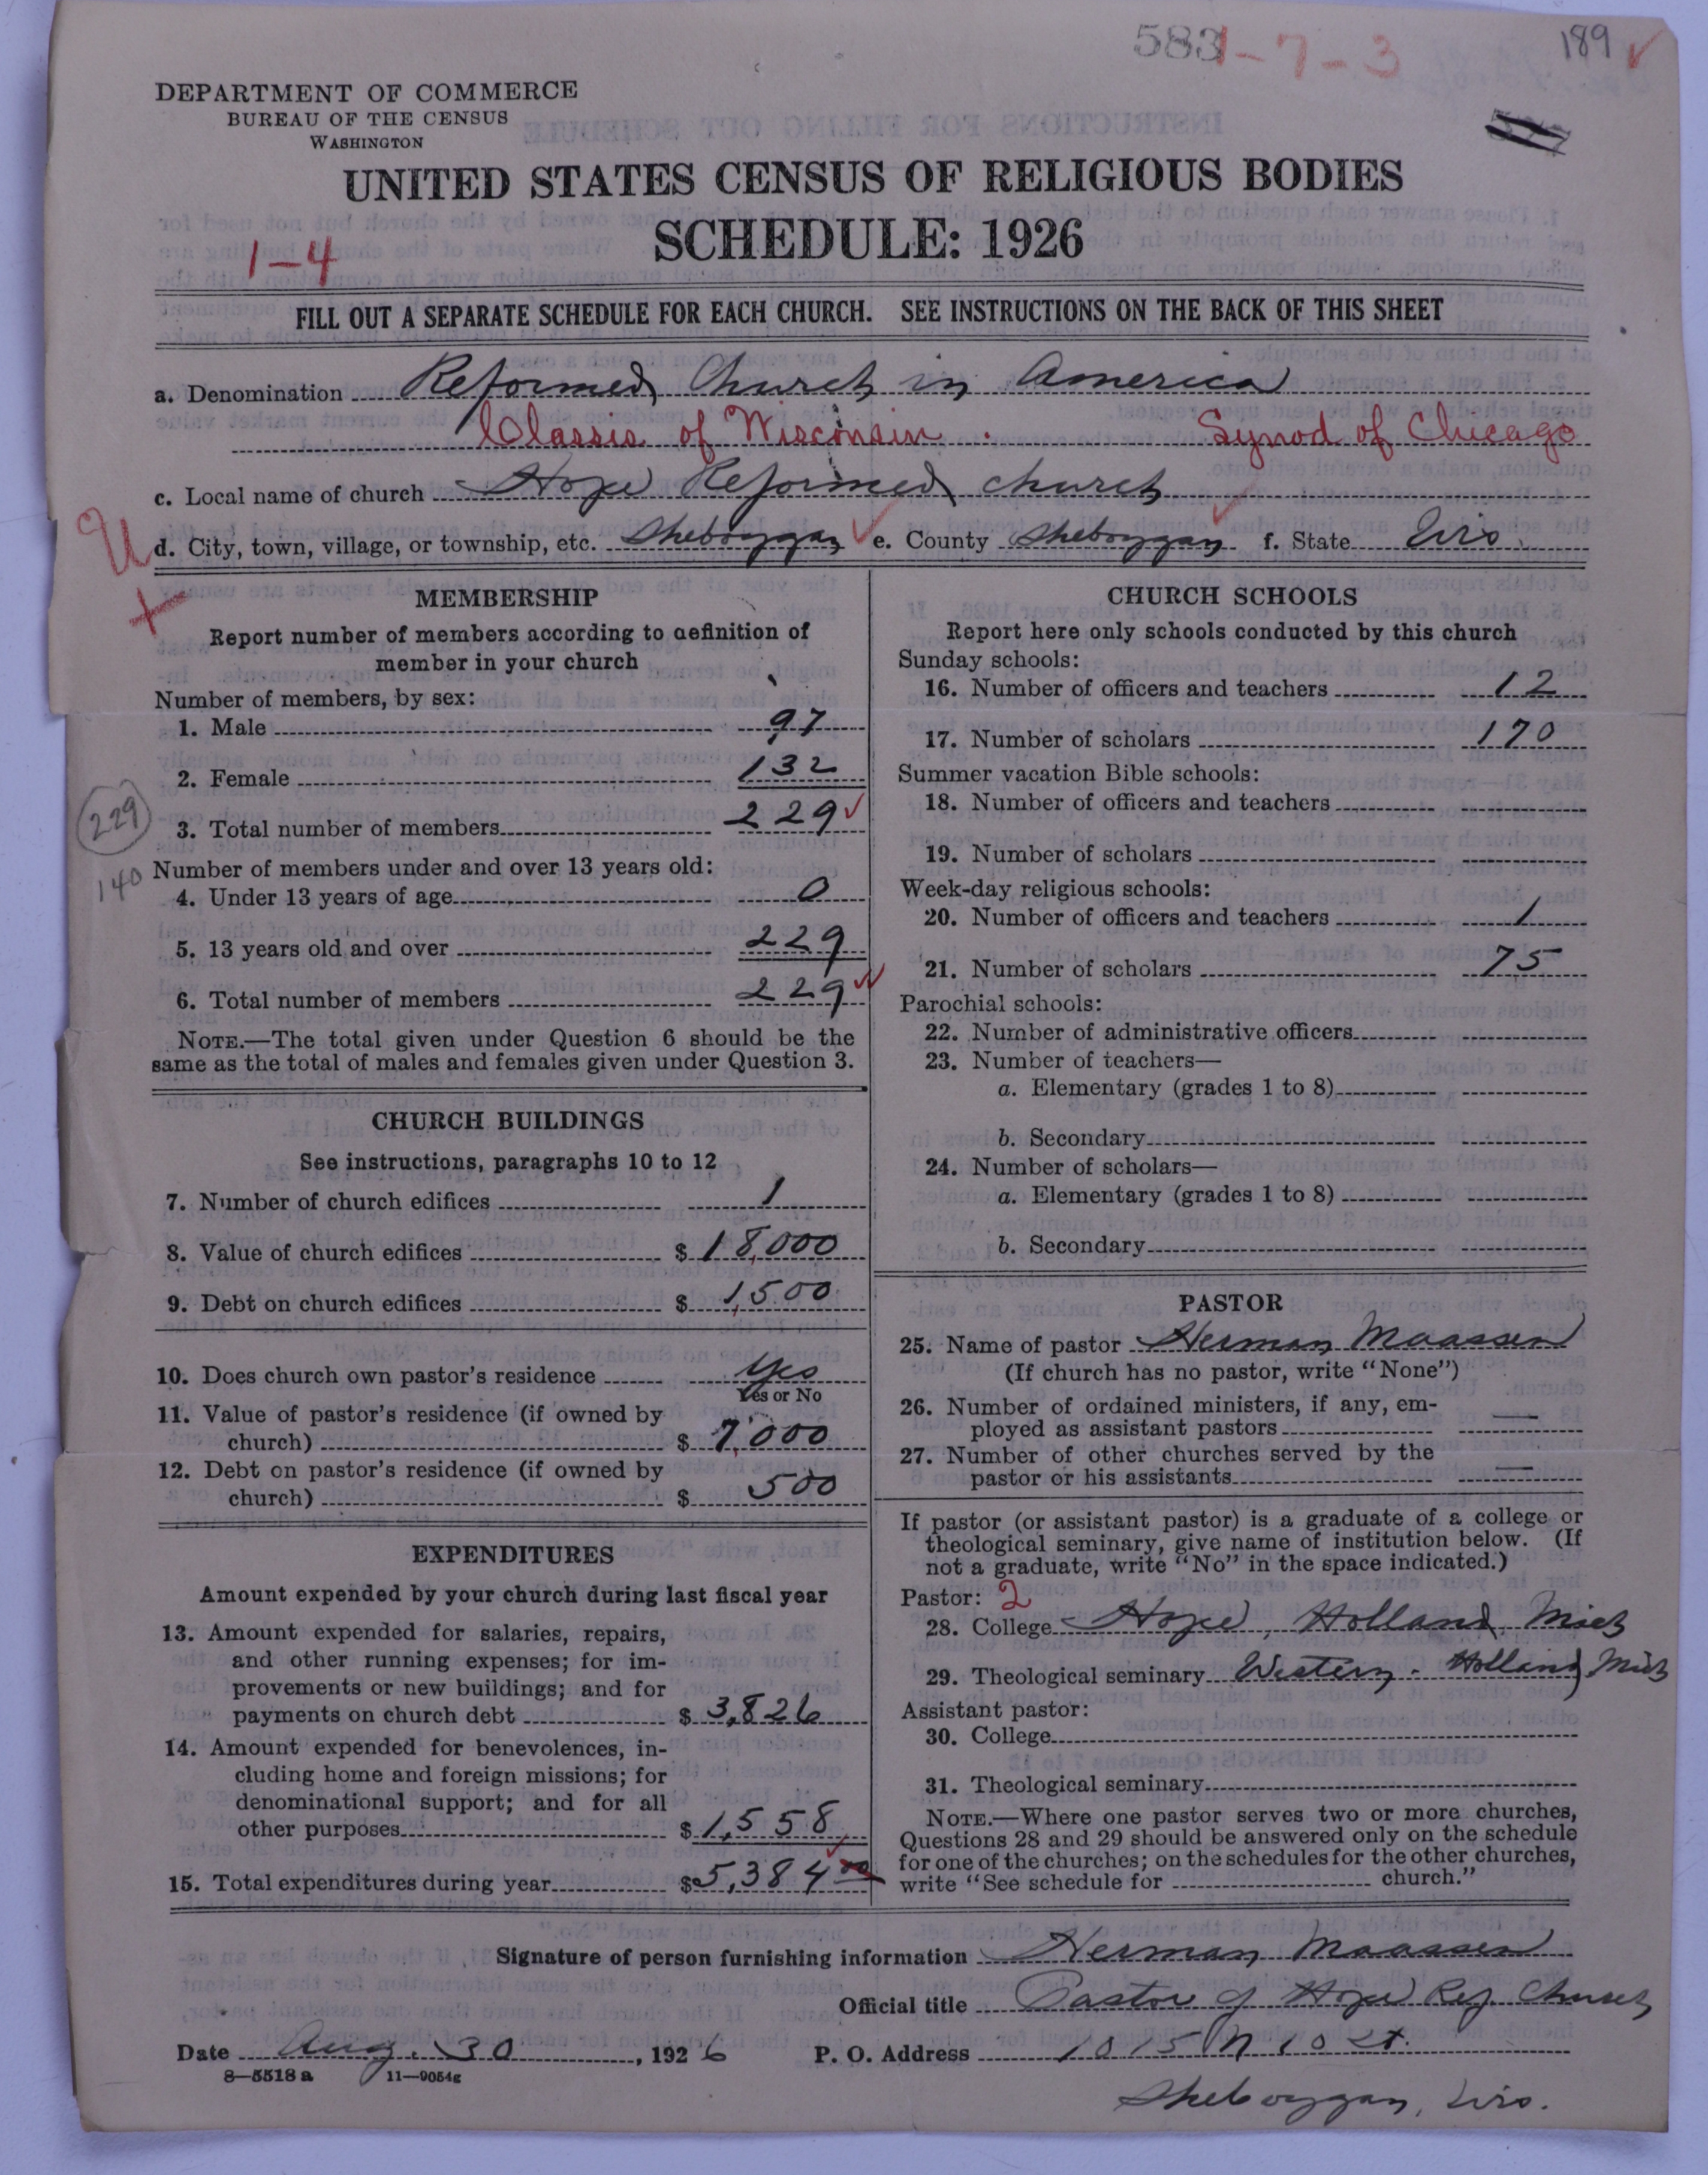 583 1-7-3 189
DEPARTMENT OF COMMERCE
BUREAU OF THE CENSUS
WASHINGTON
UNITED STATES CENSUS OF RELIGIOUS BODIES
SCHEDULE: 1926
1-4
FILL OUT A SEPARATE SCHEDULE FOR EACH CHURCH. SEE INSTRUCTIONS ON THE BACK OF THIS SHEET
a. Denomination Reformed Church in America
Classis of Wisconsin. Synod of Chicago
c. Local name of church Hope Reformed church
U d. City, town, village, or township, etc. Sheboygan e. County Sheboygan f. State Wis.
MEMBERSHIP
Report number of members according to definition of
member in your church
Number of members, by sex:
1. Male 97
2. Female 132
229
3. Total number of members 229
140
Number of members under and over 13 years old:
4. Under 13 years of age 0
5. 13 years old and over 229
6. Total number of members 229
NOTE.—The total given under Question 6 should be the
same as the total of males and females given under Question 3.
CHURCH BUILDINGS
See instructions, paragraphs 10 to 12
7. Number of church edifices 1
8. Value of church edifices $ 18,000
9. Debt on church edifices $ 1,500
10. Does church own pastor's residence Yes
Yes or No
11. Value of pastor's residence (if owned by
church) $ 7,000
12. Debt on pastor's residence (if owned by
church) $ 500
EXPENDITURES
Amount expended by your church during last fiscal year
13. Amount expended for salaries, repairs,
and other running expenses; for im-
provements or new buildings; and for
payments on church debt $ 3,826
14. Amount expended for benevolences, in-
cluding home and foreign missions; for
denominational support; and for all
other purposes $ 1,558
15. Total expenditures during year $ 5,384 00
CHURCH SCHOOLS
Report here only schools conducted by this church
Sunday schools:
16. Number of officers and teachers 12
17. Number of scholars 170
Summer vacation Bible schools:
18. Number of officers and teachers
19. Number of scholars
Week-day religious schools:
20. Number of officers and teachers 1
21. Number of scholars 75
Parochial schools:
22. Number of administrative officers
23. Number of teachers—
a. Elementary (grades 1 to 8)
b. Secondary
24. Number of scholars—
a. Elementary (grades 1 to 8)
b. Secondary
PASTOR
25. Name of pastor Herman Maassen
(If church has no pastor, write "None")
26. Number of ordained ministers, if any, em-
ployed as assistant pastors —
27. Number of other churches served by the
pastor or his assistants —
If pastor (or assistant pastor) is a graduate of a college or
theological seminary, give name of institution below. (If
not a graduate, write "No" in the space indicated.)
Pastor: 2
28. College Hope, Holland, Mich
29. Theological seminary Western. Holland, Mich
Assistant pastor:
30. College
31. Theological seminary
NOTE.—Where one pastor serves two or more churches,
Questions 28 and 29 should be answered only on the schedule
for one of the churches; on the schedules for the other churches,
write "See schedule for church."
Signature of person furnishing information Herman Maassen
Official title Pastor of Hope Ref. Church
Date Aug. 30, 1926 P. O. Address 1015 N 10 St.
8—5518 a 11—9054g
Sheboygan, Wis.